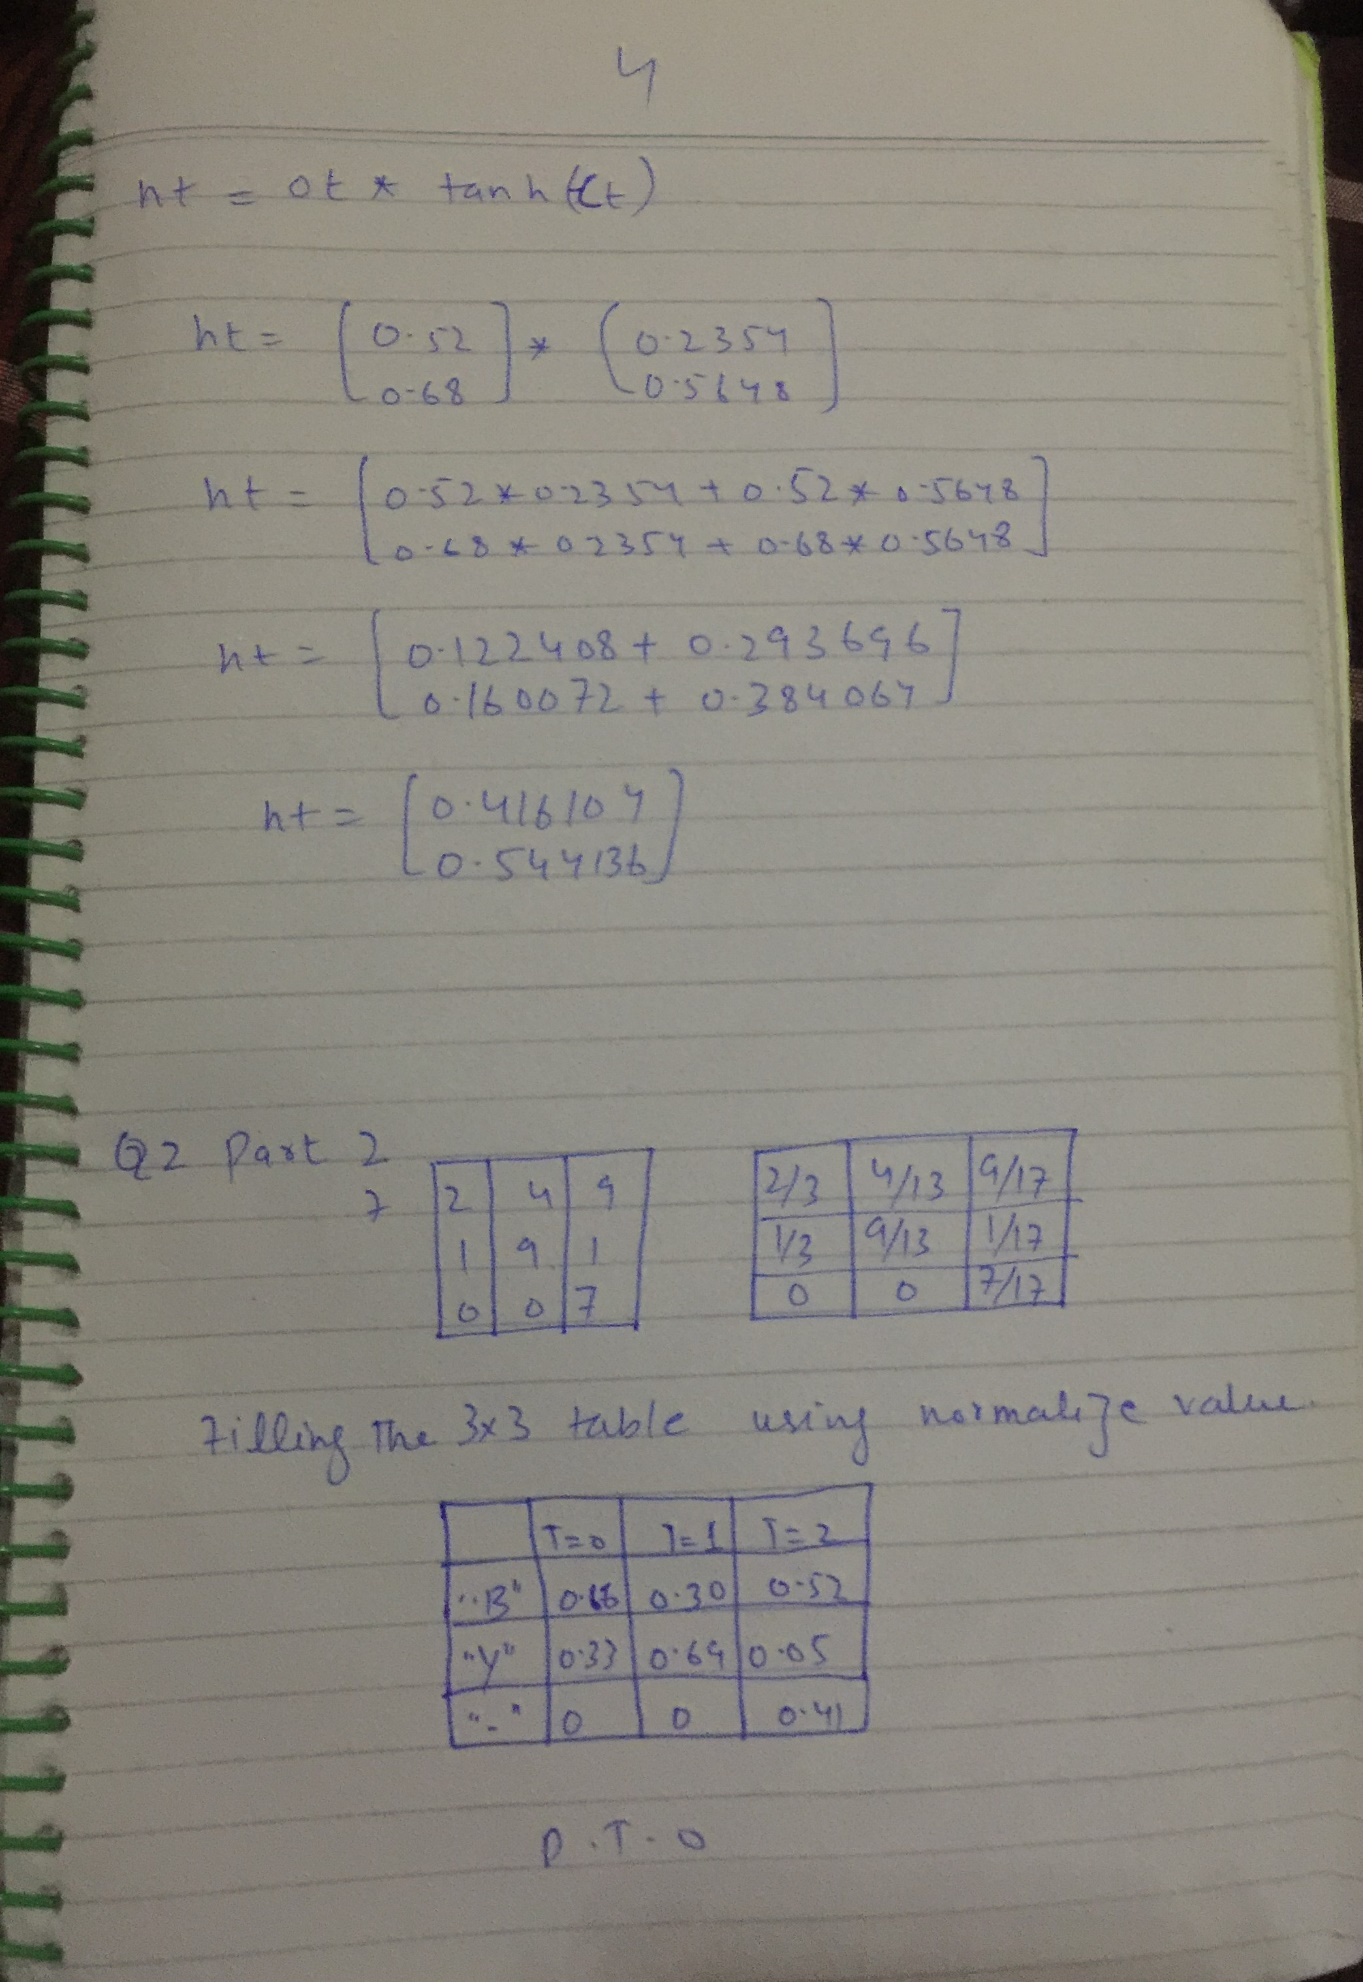 4
ht = ot * tanh(ct)
ht = [0.52 0.68] * [0.2354 0.5648]
ht = [0.52*0.2354 + 0.52*0.5648
0.68*0.2354 + 0.68*0.5648]
ht = [0.122408 + 0.293696
0.160072 + 0.384064]
ht = [0.416104
0.544136]
Q2 Part 2
7
2 4 9
1 9 1
0 0 7
2/3 4/13 9/17
1/3 9/13 1/17
0 0 7/17
Filling The 3x3 table using normalize value.
T=0 T=1 T=2
"B" 0.66 0.30 0.52
"Y" 0.33 0.69 0.05
"-" 0 0 0.41
P.T.O